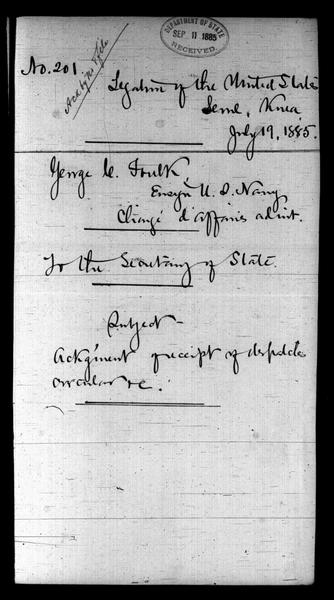 DEPARTMENT OF STATE
SEP 11 1885
RECEIVED.
No. 201
Legation of the United States
Seoul, Korea,
July 19, 1885.
George C. Foulk,
Ensign U. S. Navy
Chargé d'affaires ad int.
To the Secretary of State.
Subject -
Ackg'ment of receipt of despatch
circular &c.